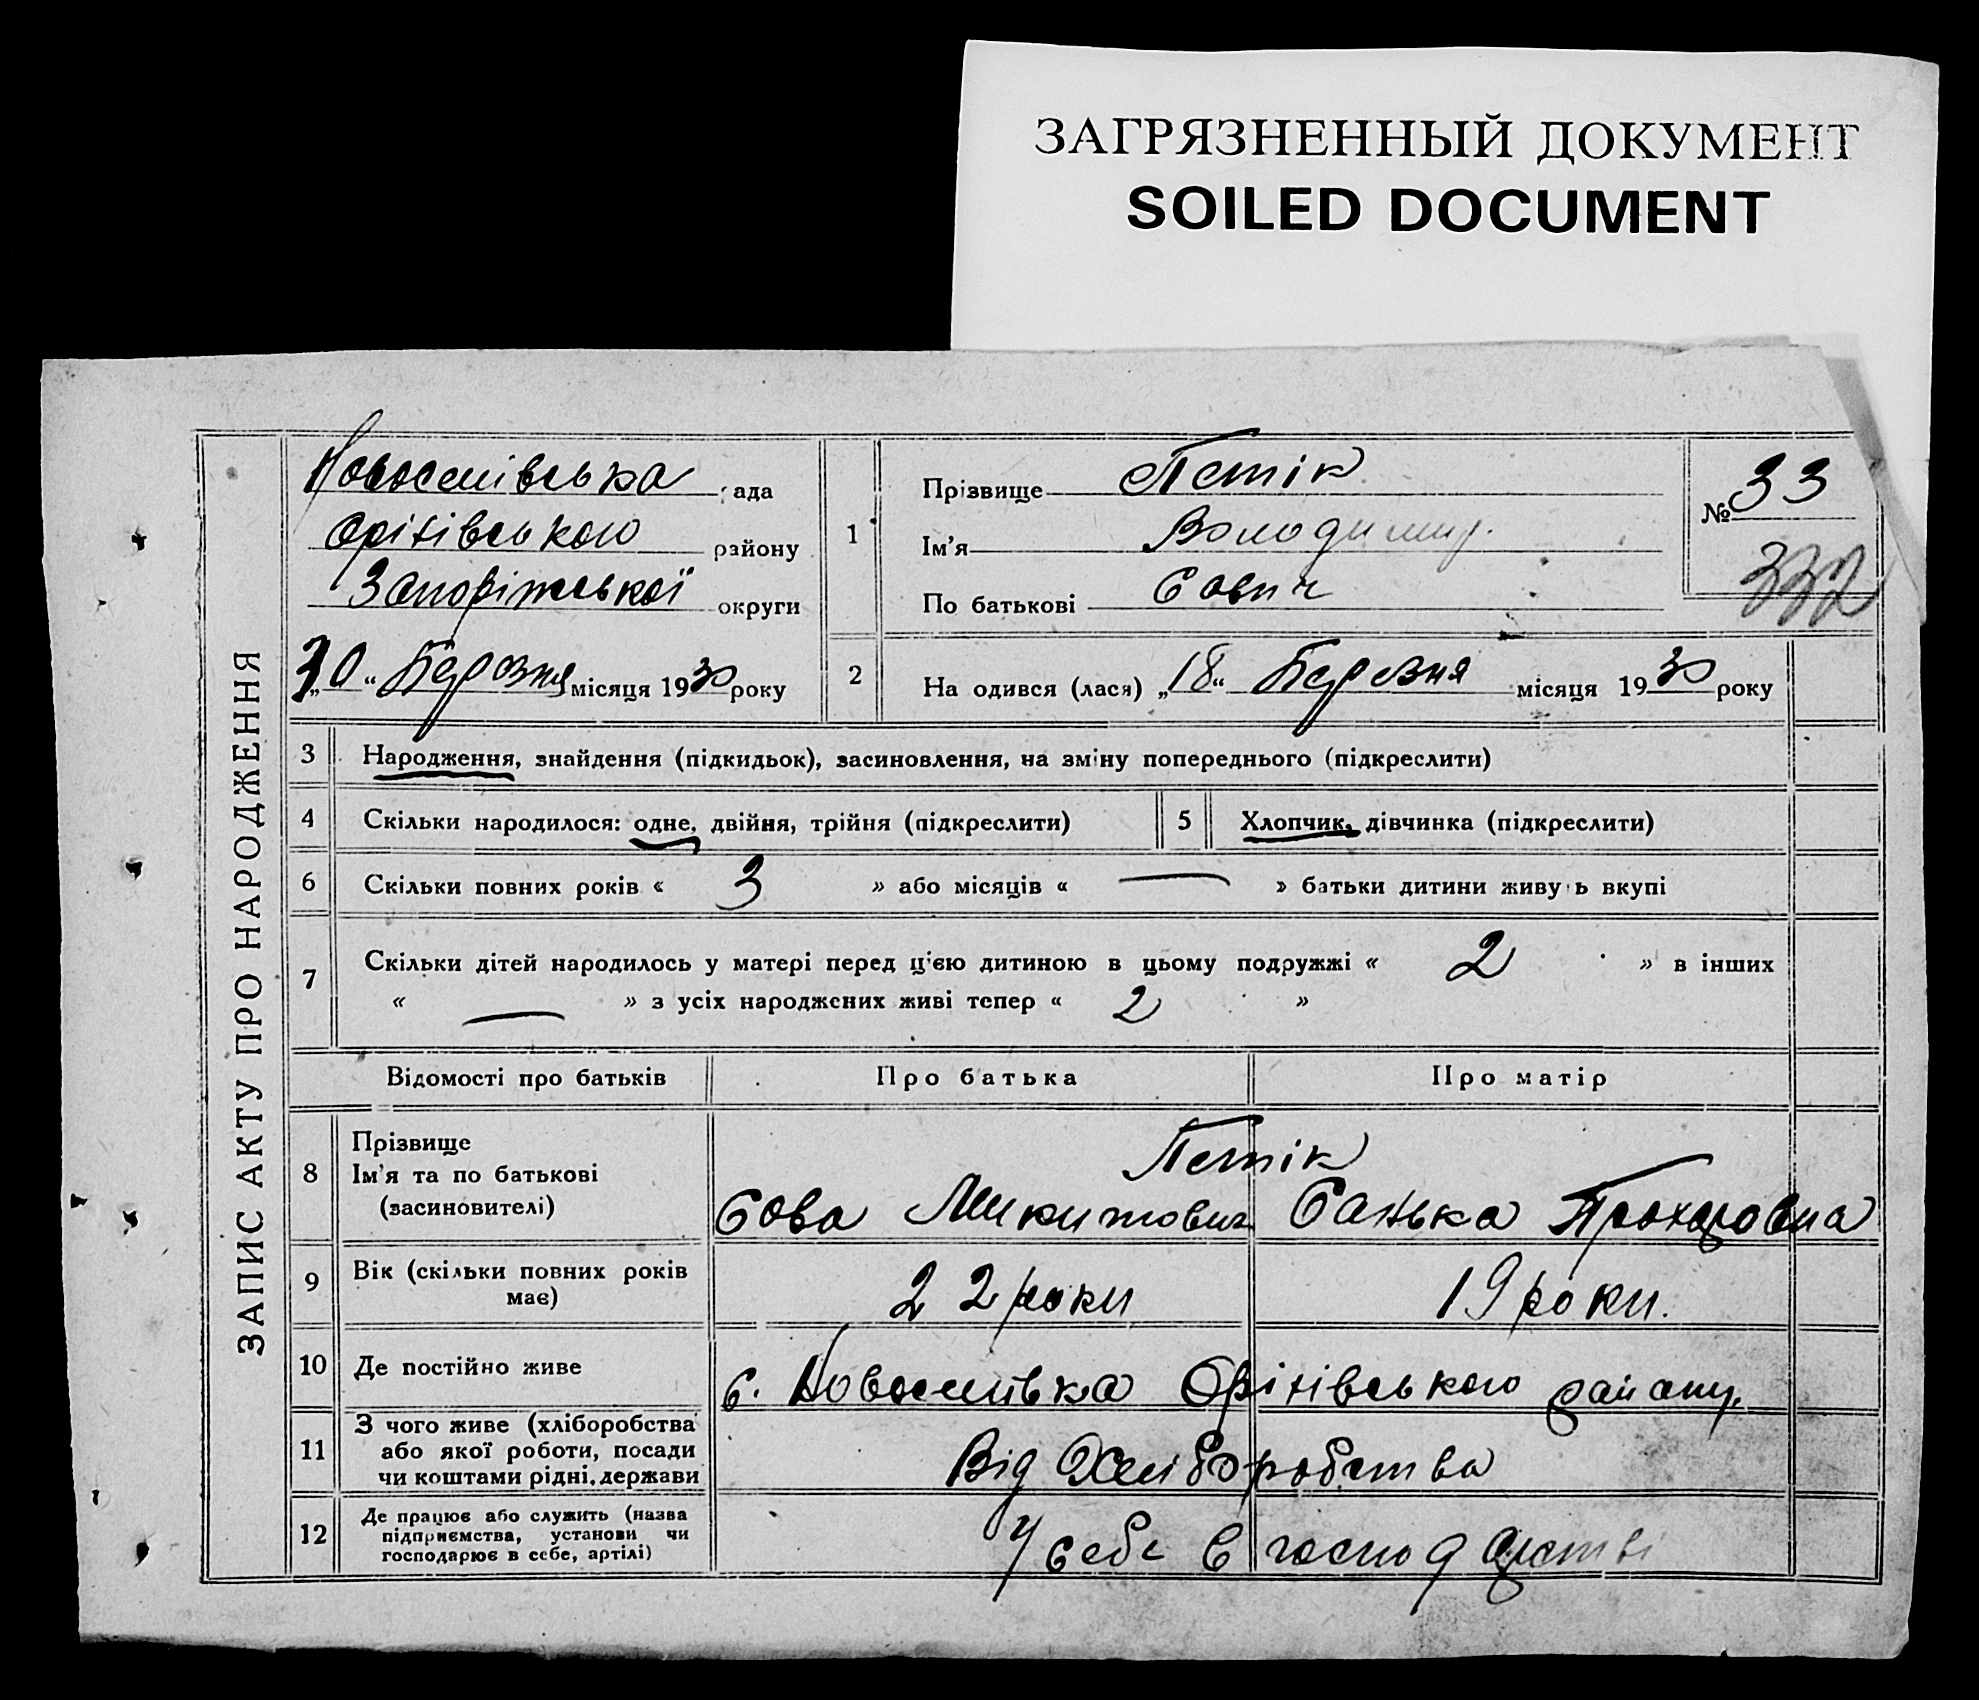 ЗАГРЯЗНЕННЫЙ ДОКУМЕНТ
SOILED DOCUMENT
ЗАПИС АКТУ ПРО НАРОДЖЕННЯ
Новоселівська рада
Оріхівського району
Запоріжської округи
„30“ Березня місяця 1930 року
1
Прізвище Петік
Ім’я Володимир.
По батькові Савич
№ 33
332
2 На одився (лася) „18“ Березня місяця 1930 року
3 Народження, знайдення (підкидьок), засиновлення, на зміну попереднього (підкреслити)
4 Скільки народилося: одне, двійня, трійня (підкреслити) 5 Хлопчик, дівчинка (підкреслити)
6 Скільки повних років « 3 » або місяців « — » батьки дитини живуть вкупі
7 Скільки дітей народилось у матері перед цією дитиною в цьому подружжі « 2 » в інших
« — » з усіх народжених живі тепер « 2 »
Відомості про батьків Про батька Про матір
8 Прізвище
Ім’я та по батькові
(засиновителі)
Петік
Сава Микитович Санька Прохоровна
9 Вік (скільки повних років
має)
22 роки 19 роки.
10 Де постійно живе с. Новоселівка Оріхівського району.
11 З чого живе (хліборобства
або якої роботи, посади
чи коштами рідні, держави
Від Хліборобства
12 Де працює або служить (назва
підприємства, установи чи
господарює в себе, артілі)
У себе в господарстві